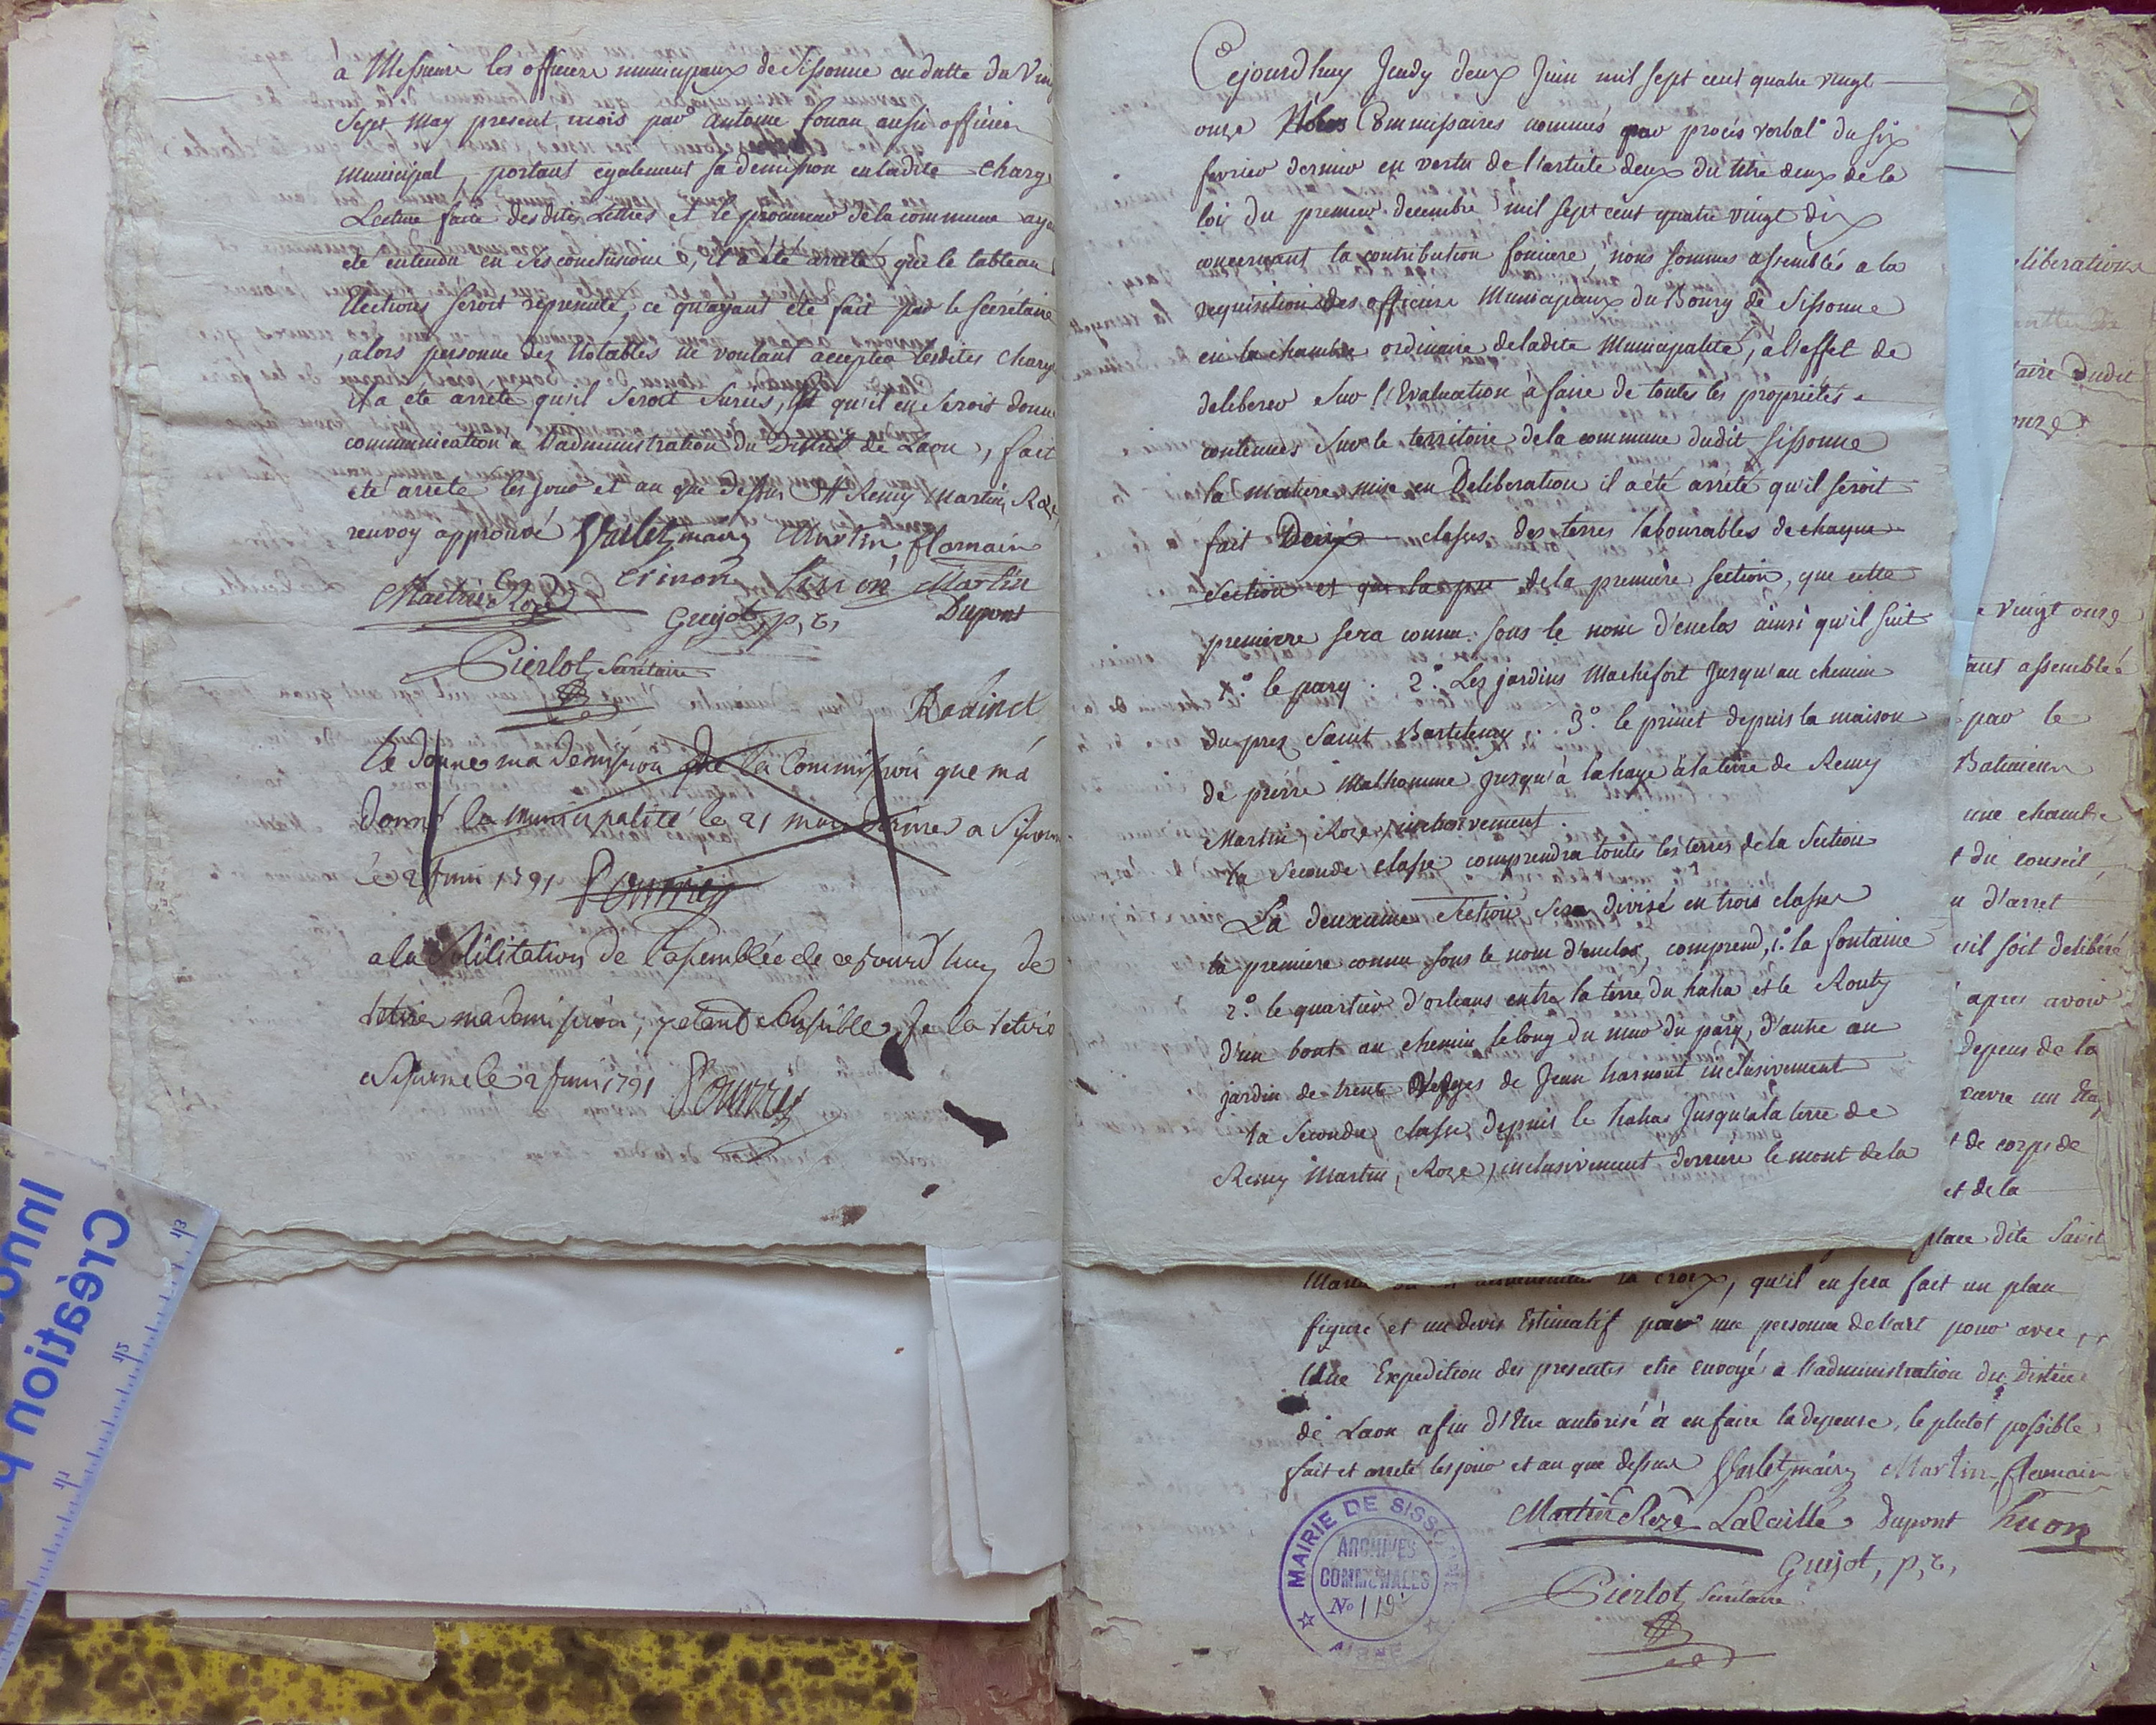 a Messieurs les officiers municipaux de Sissonne en datte du Vin
Sept May present mois par antoine fouan aussi officier
municipal, portant egalement sa demission en ladite charg
Lecture faite desdites Lettres et le procureur de la commune aya
eté entendu en ses conclusions, il a été arreté que le tableau
Elections seroit representé, ce qu'ayant eté fait par le secrétaire
, alors personne des Notables ne voulant accepter lesdites charg
il a eté arreté qu'il seroit sursis, et qu'il en seroit donné
communication a l'administration du District de Laon, fait
eté arreté les jour et an que dessus Remy Martin, Roze
renvoy approuvé Varlet, maire Martin, flamain
Martin Roze crinon Simon Martin
Guyot, p, r, Dupont
Pierlot, Secrétaire
Robinet
Je donne ma demission de la Commission que ma
donné la municipalité le 21 mai dernier a Sisson
ce 2 Juin 1791 Pourrier
a la solilitation de l'assemblée de ce jourd'huy de
retirer ma demission, y etant sensible, Je la retire
a Sissonne le 2 Juin 1791 Pourrier
Cejourd'huy Jeudy deux Juin mil sept cent quatre vingt
onze Nous Commissaires nommés par procès verbal du six
fevrier dernier en vertu de l'article deux du titre deux de la
loi du premier decembre mil sept cent quatre vingt dix
concernant la contribution fonciere, nous sommes assemblés a la
requisition des officiers Municipaux du Bourg de Sissonne
en la chambre ordinaire de ladite Municipalité, a l'effet de
deliberer sur l'Evaluation à faire de toutes les proprietés
contenues sur le territoire de la commune dudit Sissonne
la matiere mise en Deliberation il a été arrété qu'il seroit
fait Deux classes des terres labourables de chaque
section et que la pre de la premiere section, que cette
premierre sera connu sous le nom d'enclos ainsi qu'il suit
1.° le parq. 2.° Les jardins Machefort Jusqu'au chemin
du prez Saint Bartelemy. 3.° le prinet depuis la maison
de pierre Malhomme Jusqu'à la haye à la terre de Remy
Martin, Roze, inclusivement.
La seconde classe comprendra toutes les terres de la Section
La deuxieme Section sera divisé en trois classes
la premiere connu sous le nom d'enclos, comprend, 1.° la fontaine
2.° le quartier d'orleans entre la terre du haha et le Routy
d'un bout au chemin le long du mur du parq, d'autre au
jardin de trente Verges de Jean harnout inclusivement
La seconde classe depuis le hahas Jusqu'a la terre de
Remy Martin, Roze, inclusivement derriere le mont de la
eliberations
taire dudit
onze
e vingt onze
tant assemblé
par le
Batimens
une chambre
t du conseil,
u d'arret
u'il soit deliberé
apres avoir
depens de la
t de corps de
et de la
place dite Saint
la croix, qu'il en sera fait un plan
figuré et un devis Estimatif par une personne de l'art pour avec
Une Expedition des presentes etre envoyé a l'administration du District
de Laon afin d'Etre autorisé à en faire la depense, le plutot possible
fait et arreté les jour et an que dessus Varlet, maire Martin, flamain
Martin Roze Lacaille Dupont huon
Guyot, p, r,
Pierlot, Secrétaire
MAIRIE DE SISSONNE
ARCHIVES
COMMUNALES
No 119
AISNE
Création